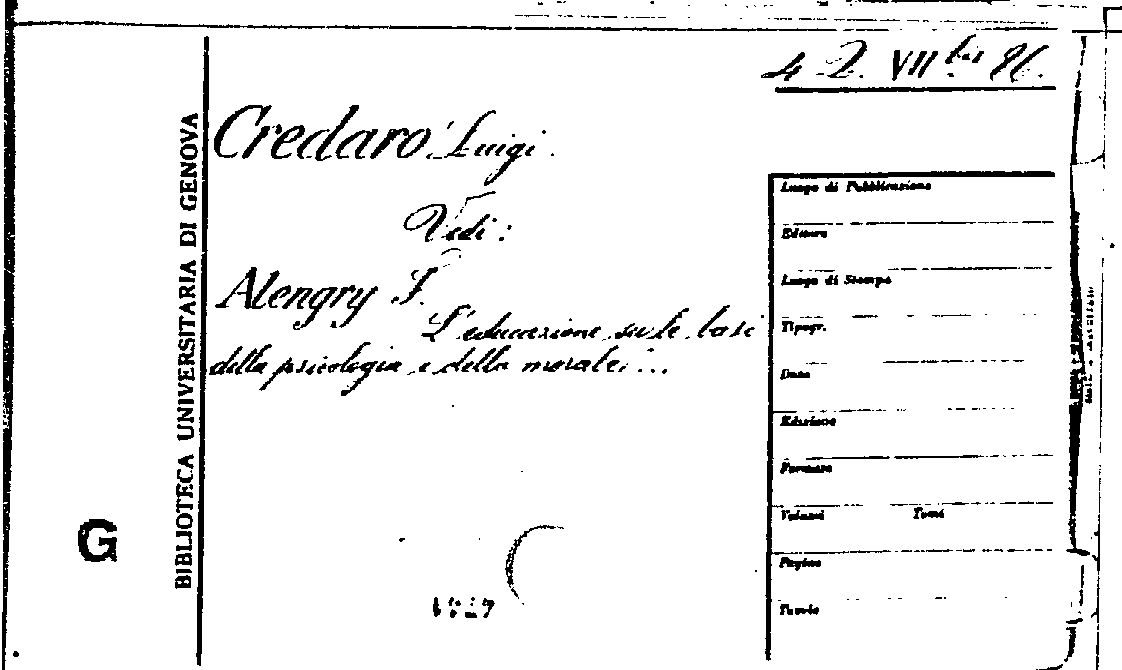 4 2. VII bis 86.
BIBLIOTECA UNIVERSITARIA DI GENOVA
Credaro Luigi.
Vedi:
Alengry F.
L'educazione sulle basi
della psicologia e della morale...
Luogo di Pubblicazione
Editore
Luogo di Stampa
Tipogr.
Data
Edizione
Formato
Volumi Tomi
Pagine
Tavole
G